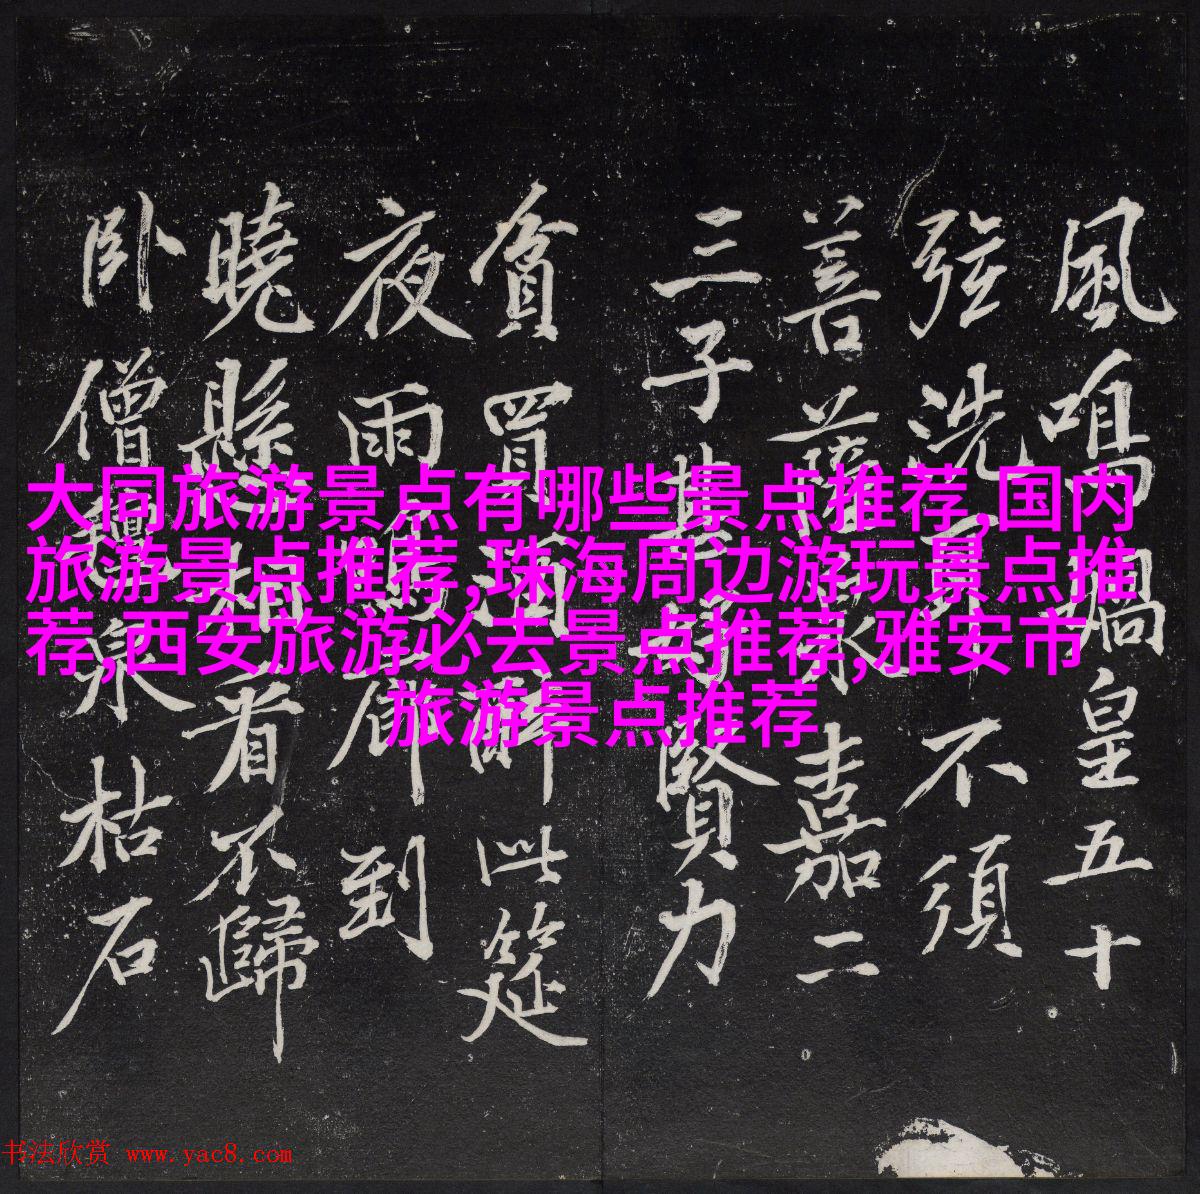 大同旅游景点有哪些景点推荐,国内
旅游景点推荐,珠海周边游玩景点推
荐,西安旅游必去景点推荐,雅安市
旅游景点推荐
風鳴媧皇五十
弦洗耳不須
菩薩泉嘉二
三子甚好賢力
貧買酒醉此筵
夜雨鳴廊到
曉懸相看不歸
卧僧氈泉枯石
书法欣赏 www.yac8.com